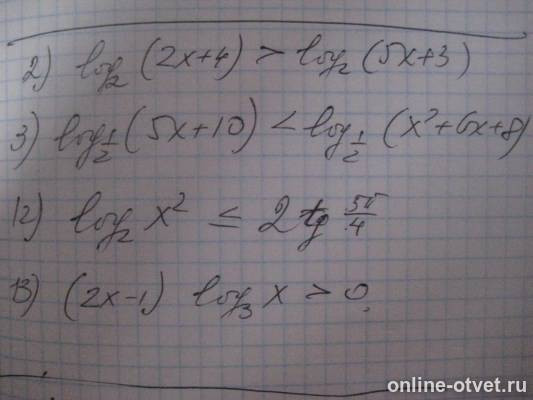 2) log₂ (2x+4) > log₂ (5x+3)
3) log½ (5x+10) < log½ (x²+6x+8)
12) log₂ x² ≤ 2 tg 5π/4
13) (2x-1) log₃ x > 0.
online-otvet.ru